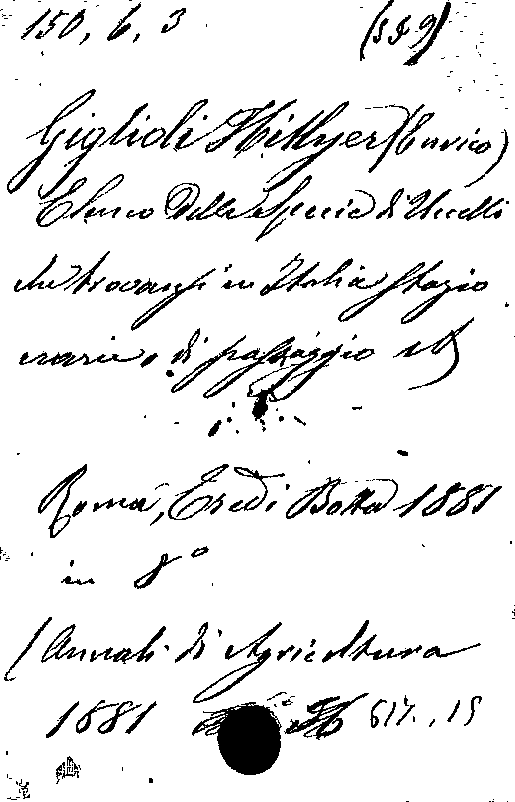 150, 6, 3 (559)
Giglioli Hillyer (Enrico)
Elenco delle Specie di Uccelli
che trovansi in Italia stazio
narie, o di passaggio
Roma, Eredi Botta 1881
in 8°
(Annali di Agricoltura
1881 617., 15